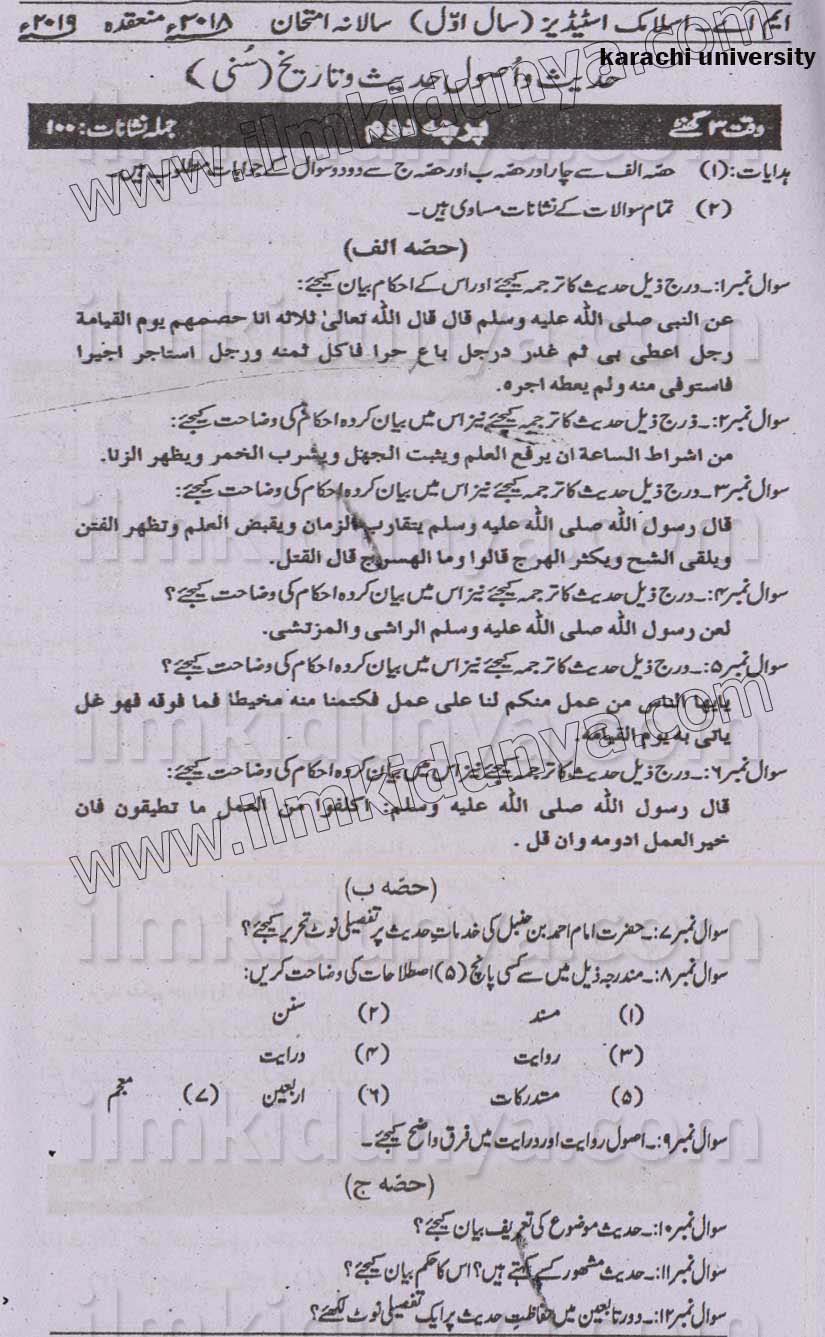 ایم اے۔ اسلامک اسٹیڈیز (سال اوّل) سالانہ امتحان ۲۰۱۸ء منعقدہ ۲۰۱۹ء
karachi university
حدیث و اُصول حدیث و تاریخ (سُنی)
وقت ۳ گھنٹے پرچہ دوم جملہ نشانات: ۱۰۰
ہدایات: (۱) حصّہ الف سے چار اور حصّہ ب اور حصّہ ج سے دو دو سوال کے جوابات مطلوب ہیں۔
(۲) تمام سوالات کے نشانات مساوی ہیں۔
(حصّہ الف)
سوال نمبر۱:۔ درج ذیل حدیث کا ترجمہ کیجئے اور اس کے احکام بیان کیجئے:
عن النبی صلی اللہ علیہ وسلم قال قال اللہ تعالیٰ ثلاثہ انا حصمھم یوم القیامة
رجل اعطی بی ثم غدر درجل باع حرا فاکل ثمنہ ورجل استاجر اجیرا
فاستوفی منہ ولم یعطہ اجرہ.
سوال نمبر۲:۔ درج ذیل حدیث کا ترجمہ کیجئے نیز اس میں بیان کردہ احکام کی وضاحت کیجئے:
من اشراط الساعة ان یرفع العلم ویثبت الجھل ویشرب الخمر ویظھر الزنا.
سوال نمبر۳:۔ درج ذیل حدیث کا ترجمہ کیجئے نیز اس میں بیان کردہ احکام کی وضاحت کیجئے:
قال رسول اللہ صلی اللہ علیہ وسلم یتقارب الزمان ویقبض العلم وتظھر الفتن
ویلقی الشح ویکثر الھرج قالوا وما الھسرج قال القتل.
سوال نمبر۴:۔ درج ذیل حدیث کا ترجمہ کیجئے نیز اس میں بیان کردہ احکام کی وضاحت کیجئے؟
لعن رسول اللہ صلی اللہ علیہ وسلم الراشی والمزتشی.
سوال نمبر۵:۔ درج ذیل حدیث کا ترجمہ کیجئے نیز اس میں بیان کردہ احکام کی وضاحت کیجئے؟
یایھا الناس من عمل منکم لنا علی عمل فکتمنا منہ مخیطا فما فوقہ فھو غل
یاتی بہ یوم القیامہ.
سوال نمبر۶:۔ درج ذیل حدیث کا ترجمہ کیجئے نیز اس میں بیان کردہ احکام کی وضاحت کیجئے:
قال رسول اللہ صلی اللہ علیہ وسلم: اکلفوا من العمل ما تطیقون فان
خیر العمل ادومہ وان قل .
(حصّہ ب)
سوال نمبر۷:۔ حضرت امام احمد بن حنبل کی خدماتِ حدیث پر تفصیلی نوٹ تحریر کیجئے؟
سوال نمبر۸:۔ مندرجہ ذیل میں سے کسی پانچ (۵) اصطلاحات کی وضاحت کریں:
(۱) مسند (۲) سنن
(۳) روایت (۴) درایت
(۵) مستدرکات (۶) اربعین (۷) معجم
سوال نمبر۹:۔ اصول روایت اور درایت میں فرق واضح کیجئے۔
(حصّہ ج)
سوال نمبر۱۰:۔ حدیث موضوع کی تعریف بیان کیجئے؟
سوال نمبر۱۱:۔ حدیث مشھور کسے کہتے ہیں؟ اس کا حکم بیان کیجئے؟
سوال نمبر۱۲:۔ دور تابعین میں حفاظتِ حدیث پر ایک تفصیلی نوٹ لکھئے؟
www.ilmkidunya.com
www.ilmkidunya.com
ilmkidunya.com
ilmkidunya.com
ilmkidunya.com
ilmkidunya.com
ilmkidunya.com
ilmkidunya.com